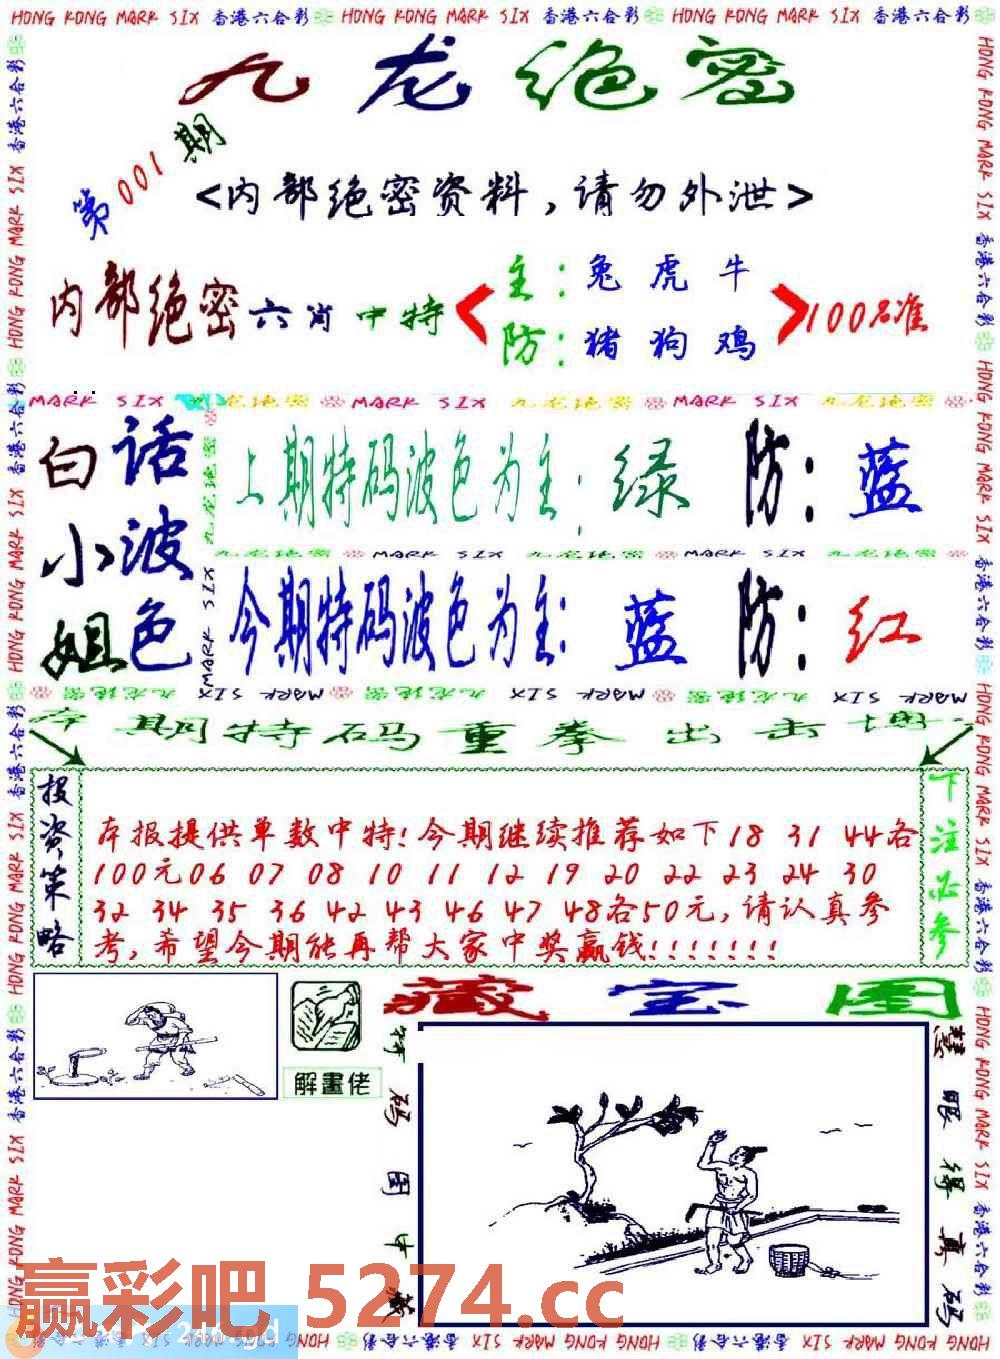 HONG KONG MARK SIX 香港六合彩 HONG KONG MARK SIX 香港六合彩 HONG KONG MARK SIX 香港六合彩
九龙绝密
第001期
<内部绝密资料，请勿外泄>
内部绝密六肖中特
主：兔 虎 牛
防：猪 狗 鸡
100%准
MARK SIX 九龙绝密 MARK SIX 九龙绝密 MARK SIX 九龙绝密
白小姐
话波色
上期特码波色为主：绿 防：蓝
九龙绝密 MARK SIX 九龙绝密 MARK SIX 九龙绝密
今期特码波色为主：蓝 防：红
MARK SIX 九龙绝密 MARK SIX 九龙绝密 MARK SIX
本期特码重拳出击
投资策略
本报提供单数中特!今期继续推荐如下18 31 44各
100元06 07 08 10 11 12 19 20 22 23 24 30
32 34 35 36 42 43 46 47 48各50元,请认真参
考,希望今期能再帮大家中奖赢钱!!!!!!!
下注必参
藏宝图
解畫佬
特码图中藏
慧眼得真码
赢彩吧 5274.cc
HONG KONG MARK SIX 香港六合彩 HONG KONG MARK SIX 香港六合彩